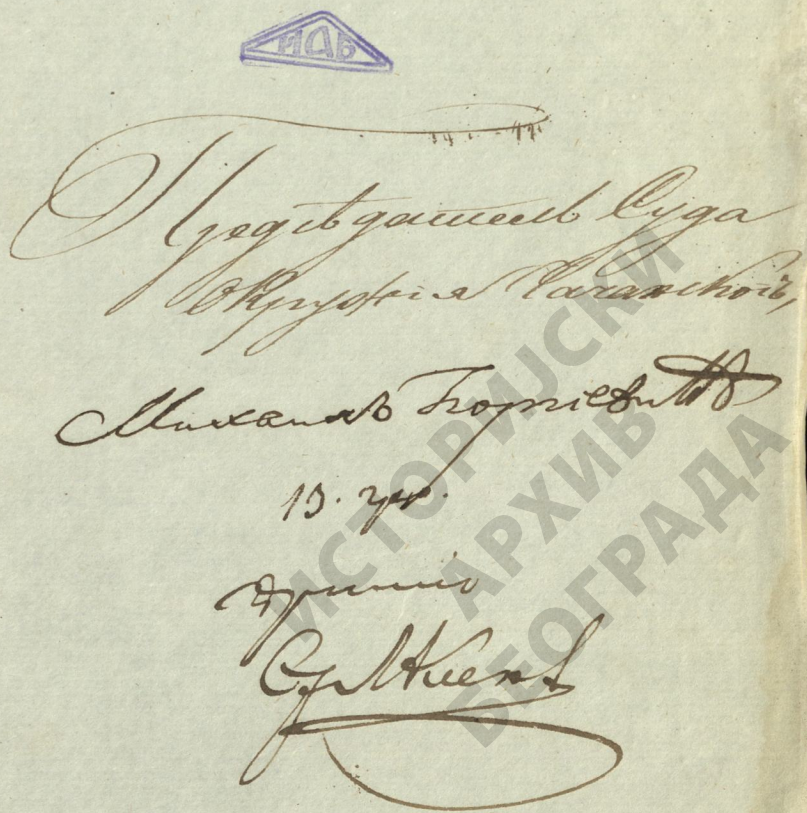 ИДБ
Предсѣдатель Суда
Окружія Чачанскогъ,
Михаилъ Ђорђевић
13.
примio
ИСТОРИЈСКИ
АРХИВ
БЕОГРАДА